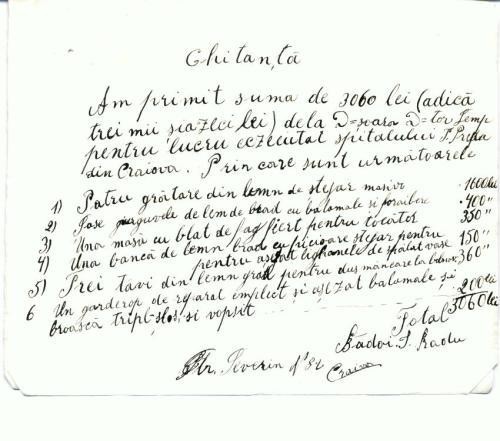 Chitanță
Am primit suma de 3060 lei (adică
trei mii șiazeci lei) dela D=șoara D=tor
pentru lucru eczecutat spitalului T. Preda
din Craiova. Prin care sunt următoarele
1) Patru grătare din lemn de stejar masiv 1600 lei
2) Șase de lem de brad cu balamale si foraibăre 400"
3) Una masă cu blat de fag fiert pentru tocător 350"
4) Una bancă de lemn brad cu picioare stejar pentru
pentru lighanele de spălat vase 150"
5) Trei tavi din lemn pentru dus mâncare la 360"
6 Un garderop de reparat implect și balamale și
broască și vopsit 200 lei
Total 3060 lei
Radoi. I. Radu
Str. Severin N° 82
Craiova